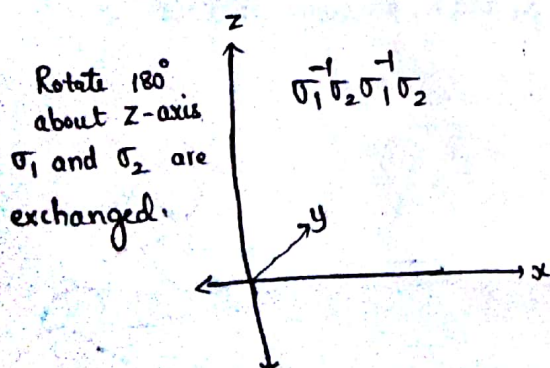 z
Rotate 180°
about Z-axis
σ₁ and σ₂ are
exchanged.
σ₁⁻¹σ₂σ₁⁻¹σ₂
y
x